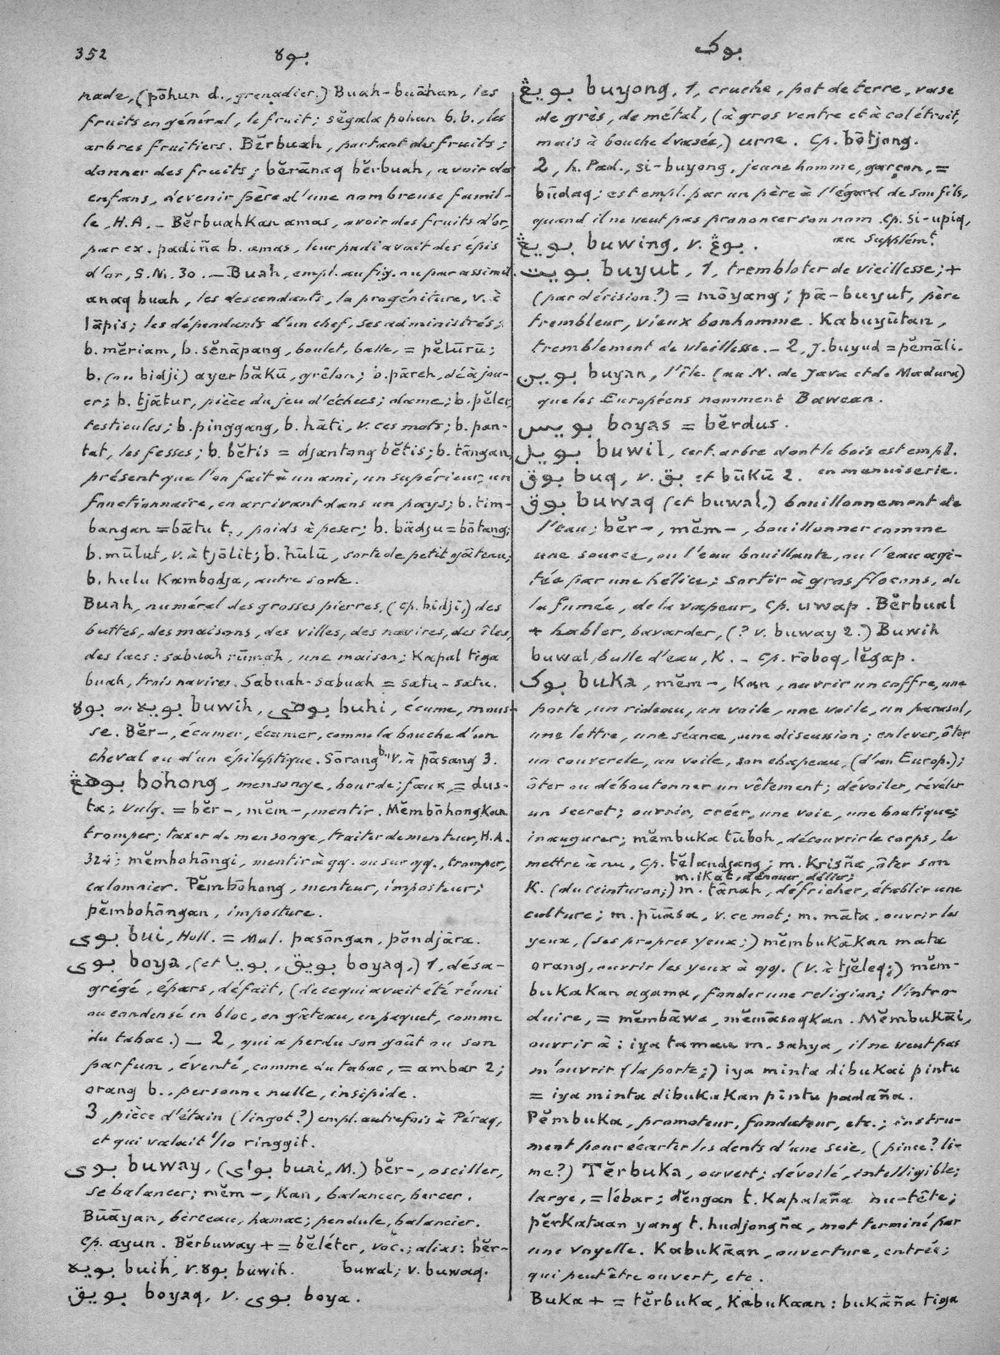 352
بوه
بوک
nade, (pōhun d., grenadier.) Buah-buāhan, les
fruits en général, le fruit; sĕgala pohun b.b., les
arbres fruitiers. Bĕrbuah, portant des fruits;
donner des fruits; bĕrānaq bĕrbuah, avoir des
enfans, devenir père d'une nombreuse famil-
le, H.A. — Bĕrbuahkan amas, avoir des fruits d'or,
par ex. padiña b. amas, leur padi avait des épis
d'or, S.M. 30. — Buah, empl. au fig. ou par assimil.
anaq buah, les descendants, la progéniture, v. à
lāpis; les dépendants d'un chef, ses administrés;
b. mĕriam, b. sĕnāpang, boulet, balle, = pĕlūrū;
b. (ou bidji) ayer bākū, grêlon; b. pāreh, dé à jou-
er; b. tjātur, pièce du jeu d'échecs; dame; b. pĕler,
testicules; b. pinggang, b. hāti, v. ces mots; b. pan-
tat, les fesses; b. bĕtis = djantong bĕtis; b. tāngan,
présent que l'on fait à un ami, un supérieur, un
fonctionnaire, en arrivant dans un pays; b. tim-
bangan = bātu t., poids à peser; b. bādju = bōtang;
b. mūlut, v. à tjōlit; b. hūlū, sorte de petit gâteau;
b. hulu Kambodja, autre sorte.
Buah, numéral des grosses pierres, (cp. bidji,) des
buttes, des maisons, des villes, des navires, des îles,
des lacs: sabuah rūmah, une maison; Kapal tiga
buah, trois navires. Sabuah-sabuah = satu-satu.
بوه ou بويه buwih, بوهي buhi, écume, mous-
se. Bĕr-, écumer, écumer, comme la bouche d'un
cheval ou d'un épileptique. Sōrong b., v. à pāsang 3.
بوهڠ bōhong, mensonge, bourde; faux, = dus-
ta; vulg. = bĕr-, mĕm-, mentir. Mĕmbōhongkan
tromper; taxer de mensonge, traiter de menteur, H.A.
324; mĕmbohōngi, mentir à qq. ou sur qq., tromper,
calomnier. Pĕmbōhong, menteur, imposteur;
pĕmbohōngan, imposture.
بوي bui, Holl. = Mal. pasōngan, pĕndjāra.
بوي boya, (et بويا, بويق boyaq,) 1, désa-
grégé, épars, défait, (de ce qui avait été réuni
ou condensé en bloc, en gâteau, en paquet, comme
du tabac.) — 2, qui a perdu son goût ou son
parfum, éventé, comme du tabac, = ambar 2;
orang b., personne nulle, insipide.
3, pièce d'étain (lingot?) empl. autrefois à Péraq,
et qui valait 1/10 ringgit.
بوي buway, (بواي buai, M.) bĕr-, osciller,
se balancer; mĕm-, kan, balancer, bercer.
Būāyan, berceau, hamac; pendule, balancier.
Cp. ayun. Bĕrbuway + = bĕléter, voc.; alias: bĕr-
بويه buih, v. بوه buwih. buwal; v. buwaq.
بويق boyaq, v. بوي boya.
بويڠ buyong, 1, cruche, pot de terre, vase
de grès, de métal, (à gros ventre et à col étroit,
mais à bouche évasée,) urne. Cp. bōtjong.
2, h. Pad., si-buyong, jeune homme, garçon, =
būdaq; est empl. par un père à l'égard de son fils,
quand il ne veut pas prononcer son nom. Cp. si-upiq,
au Supplémt.
بويڠ buwing, v. بوڠ.
بويت buyut, 1, trembloter de vieillesse; +
(par dérision?) = mōyang; pā-buyut, père
trembleur, vieux bonhomme. Kabuyūtan,
tremblement de vieillesse. — 2, J. buyud = pĕmāli.
بوين buyan, l'île (au N. de Java et de Madura)
que les Européens nomment Bawean.
بويس boyas = bĕrdus.
بويل buwil, cert. arbre dont le bois est empl.
en menuiserie.
بوق buq, v. بق et būkū 2.
بوق buwaq (et buwal,) bouillonnement de
l'eau; bĕr-, mĕm-, bouillonner comme
une source, ou l'eau bouillante, ou l'eau agi-
tée par une hélice; sortir à gros flocons, de
la fumée, de la vapeur, cp. uwap. Bĕrbual
+ habler, bavarder, (? v. buway 2.) Buwih
buwal, bulle d'eau, K. — Cp. rōboq, lĕgap.
بوک buka, mĕm-, kan, ouvrir un coffre, une
porte, un rideau, un voile, une voile, un parasol,
une lettre, une séance, une discussion; enlever, ôter
un couvercle, un voile, son chapeau, (d'un Europ.);
ôter ou déboutonner un vêtement; dévoiler, révéler
un secret; ouvrir, créer, une voie, une boutique;
inaugurer; mĕmbuka tūboh, découvrir le corps, le
mettre à nu, cp. tĕlandjang; m. krisña, ôter son
m. ikat, dénouer, délier;
K. (du ceinturon;) m. tānah, défricher, établir une
culture; m. pūāsa, v. ce mot; m. māta, ouvrir les
yeux, (ses propres yeux;) mĕmbukākan mata
orang, ouvrir les yeux à qq. (v. à tjĕleq;) mĕm-
bukakan agama, fonder une religion; l'intro
duire, = mĕmbāwa, mĕmāsoqkan. Mĕmbukāi,
ouvrir à: iya tamau m. sahya, il ne veut pas
m'ouvrir (la porte;) iya minta dibukai pintu
= iya minta dibukakan pintu padaña.
Pĕmbuka, promoteur, fondateur, etc.; instru-
ment pour écarter les dents d'une scie, (pince? li-
me?) Tĕrbuka, ouvert; dévoilé, intelligible;
large, = lébar; dĕngan t. kapalaña nu-tête;
pĕrkataan yang t. hudjongña, mot terminé par
une voyelle. Kabukāan, ouverture, entrée;
qui peut être ouvert, etc.
Buka + = tĕrbuka, kabukaan: bukāña tiga